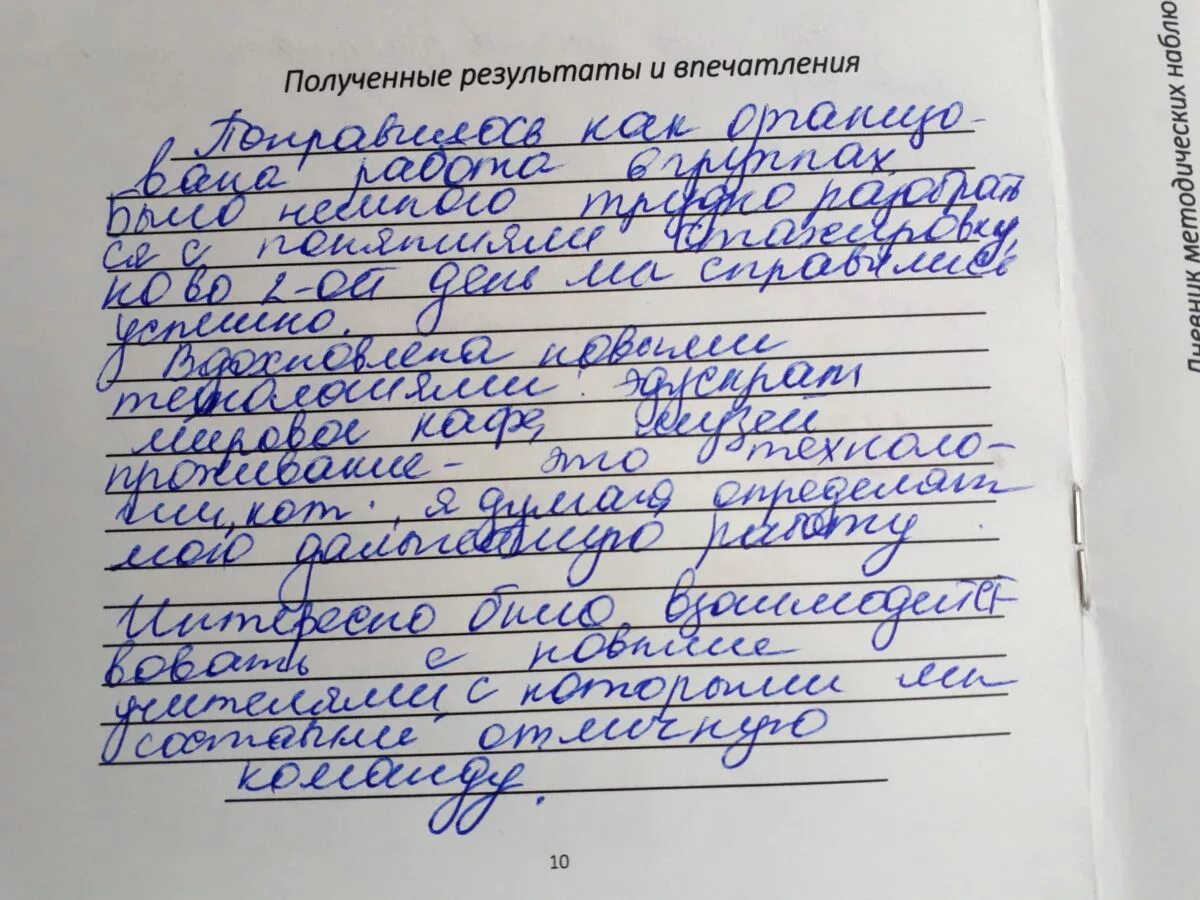 Полученные результаты и впечатления
Понравилось как организо-
вана работа в группах
Было немного трудно разобрать
ся с понятиями стажировку,
но во 2-ой день мы справились
успешно.
Вдохновлена новыми
технологиями: эдускрам
мировое кафе, музей
проживание - это техноло-
гии, кот., я думаю определят
мою дальнейшую работу.
Интересно было взаимодейст
вовать с новыми
учителями, с которыми мы
составили отличную
команду.
10
Дневник методических наблю